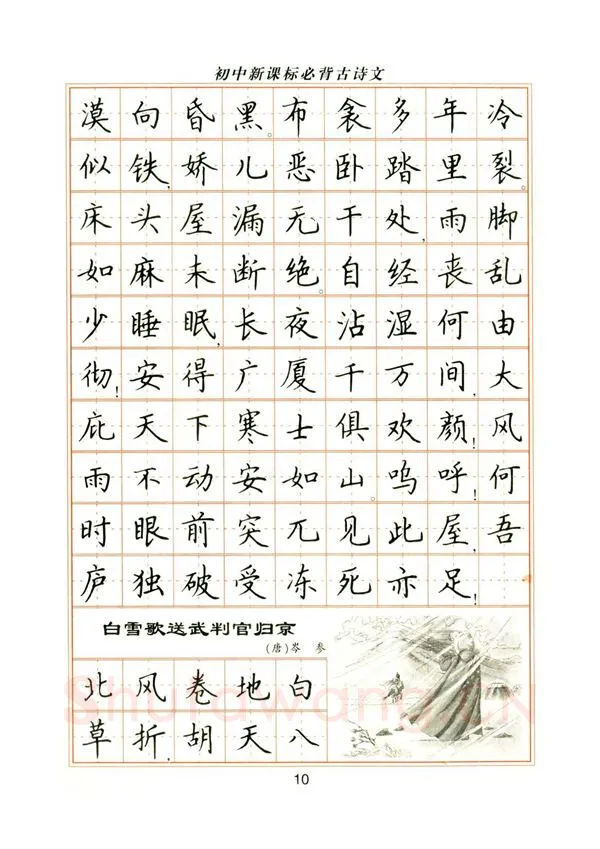 初中新课标必背古诗文
漠向昏黑。布衾多年冷
似铁,娇儿恶卧踏里裂。
床头屋漏无干处,雨脚
如麻未断绝。自经丧乱
少睡眠,长夜沾湿何由
彻!安得广厦千万间,大
庇天下寒士俱欢颜!风
雨不动安如山。呜呼!何
时眼前突兀见此屋,吾
庐独破受冻死亦足!
白雪歌送武判官归京
(唐)岑 参
北风卷地白
草折,胡天八
Shufawang.CN
10